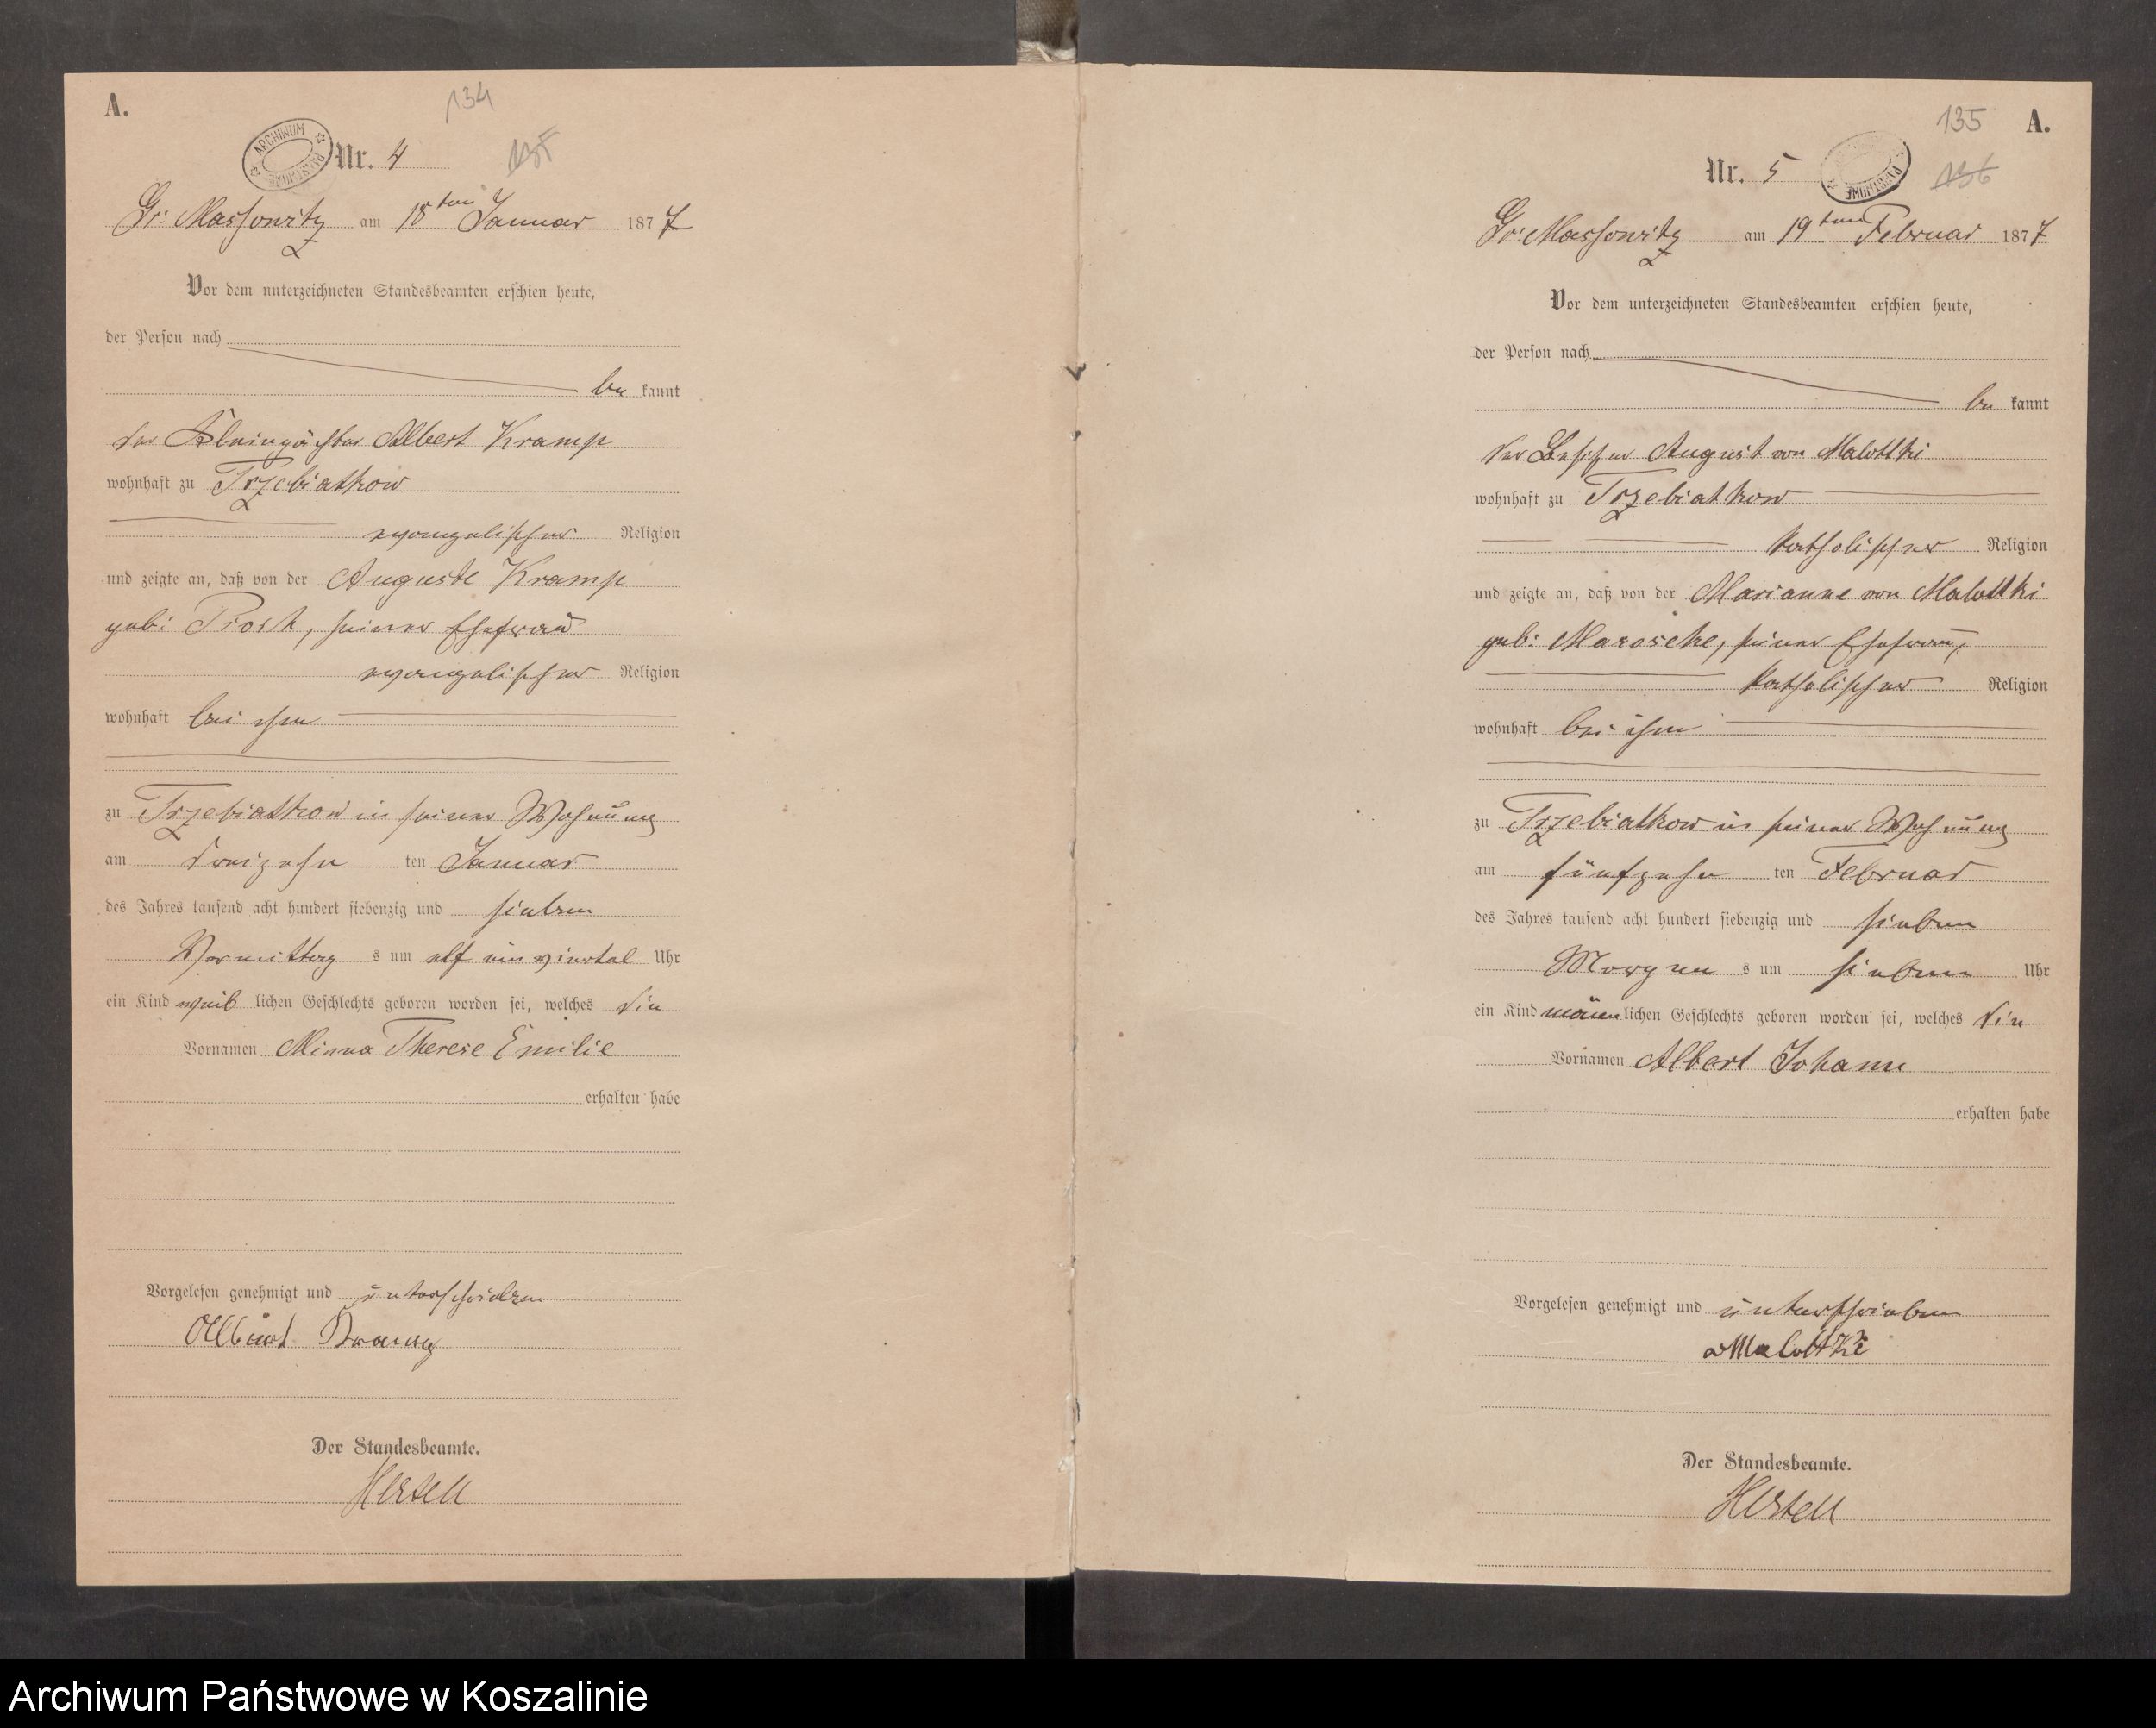 A.
134
135
ARCHIWUM PAŃSTWOWE
Nr. 4
Gr: Massowitz am 18ten Januar 1877
Vor dem unterzeichneten Standesbeamten erschien heute,
der Person nach
be kannt
der Kleinpächter Albert Kramp
wohnhaft zu Trzebiatkow
evangelischer Religion
und zeigte an, daß von der Auguste Kramp
geb: Piosk, seiner Ehefrau
evangelischer Religion
wohnhaft bei ihm
zu Trzebiatkow in seiner Wohnung
am dreizehn ten Januar
des Jahres tausend acht hundert siebenzig und sieben
Vormittag s um elf ein viertel Uhr
ein Kind weib lichen Geschlechts geboren worden sei, welches die
Vornamen Minna Therese Emilie
erhalten habe
Vorgelesen genehmigt und unterschrieben
Albert
Der Standesbeamte.
Hertell
135
A.
136
Nr. 5
PAŃSTWOWE
Gr: Massowitz am 19ten Februar 1877
Vor dem unterzeichneten Standesbeamten erschien heute,
der Person nach
be kannt
der Besitzer August von Malottki
wohnhaft zu Trzebiatkow
katholischer Religion
und zeigte an, daß von der Marianne von Malottki
geb: Maroscke, seiner Ehefrau,
katholischer Religion
wohnhaft bei ihm
zu Trzebiatkow in seiner Wohnung
am fünfzehn ten Februar
des Jahres tausend acht hundert siebenzig und sieben
Morgen s um sieben Uhr
ein Kind männ lichen Geschlechts geboren worden sei, welches die
Vornamen Albert Johann
erhalten habe
Vorgelesen genehmigt und unterschrieben
v Malottki
Der Standesbeamte.
Hertell
Archiwum Państwowe w Koszalinie